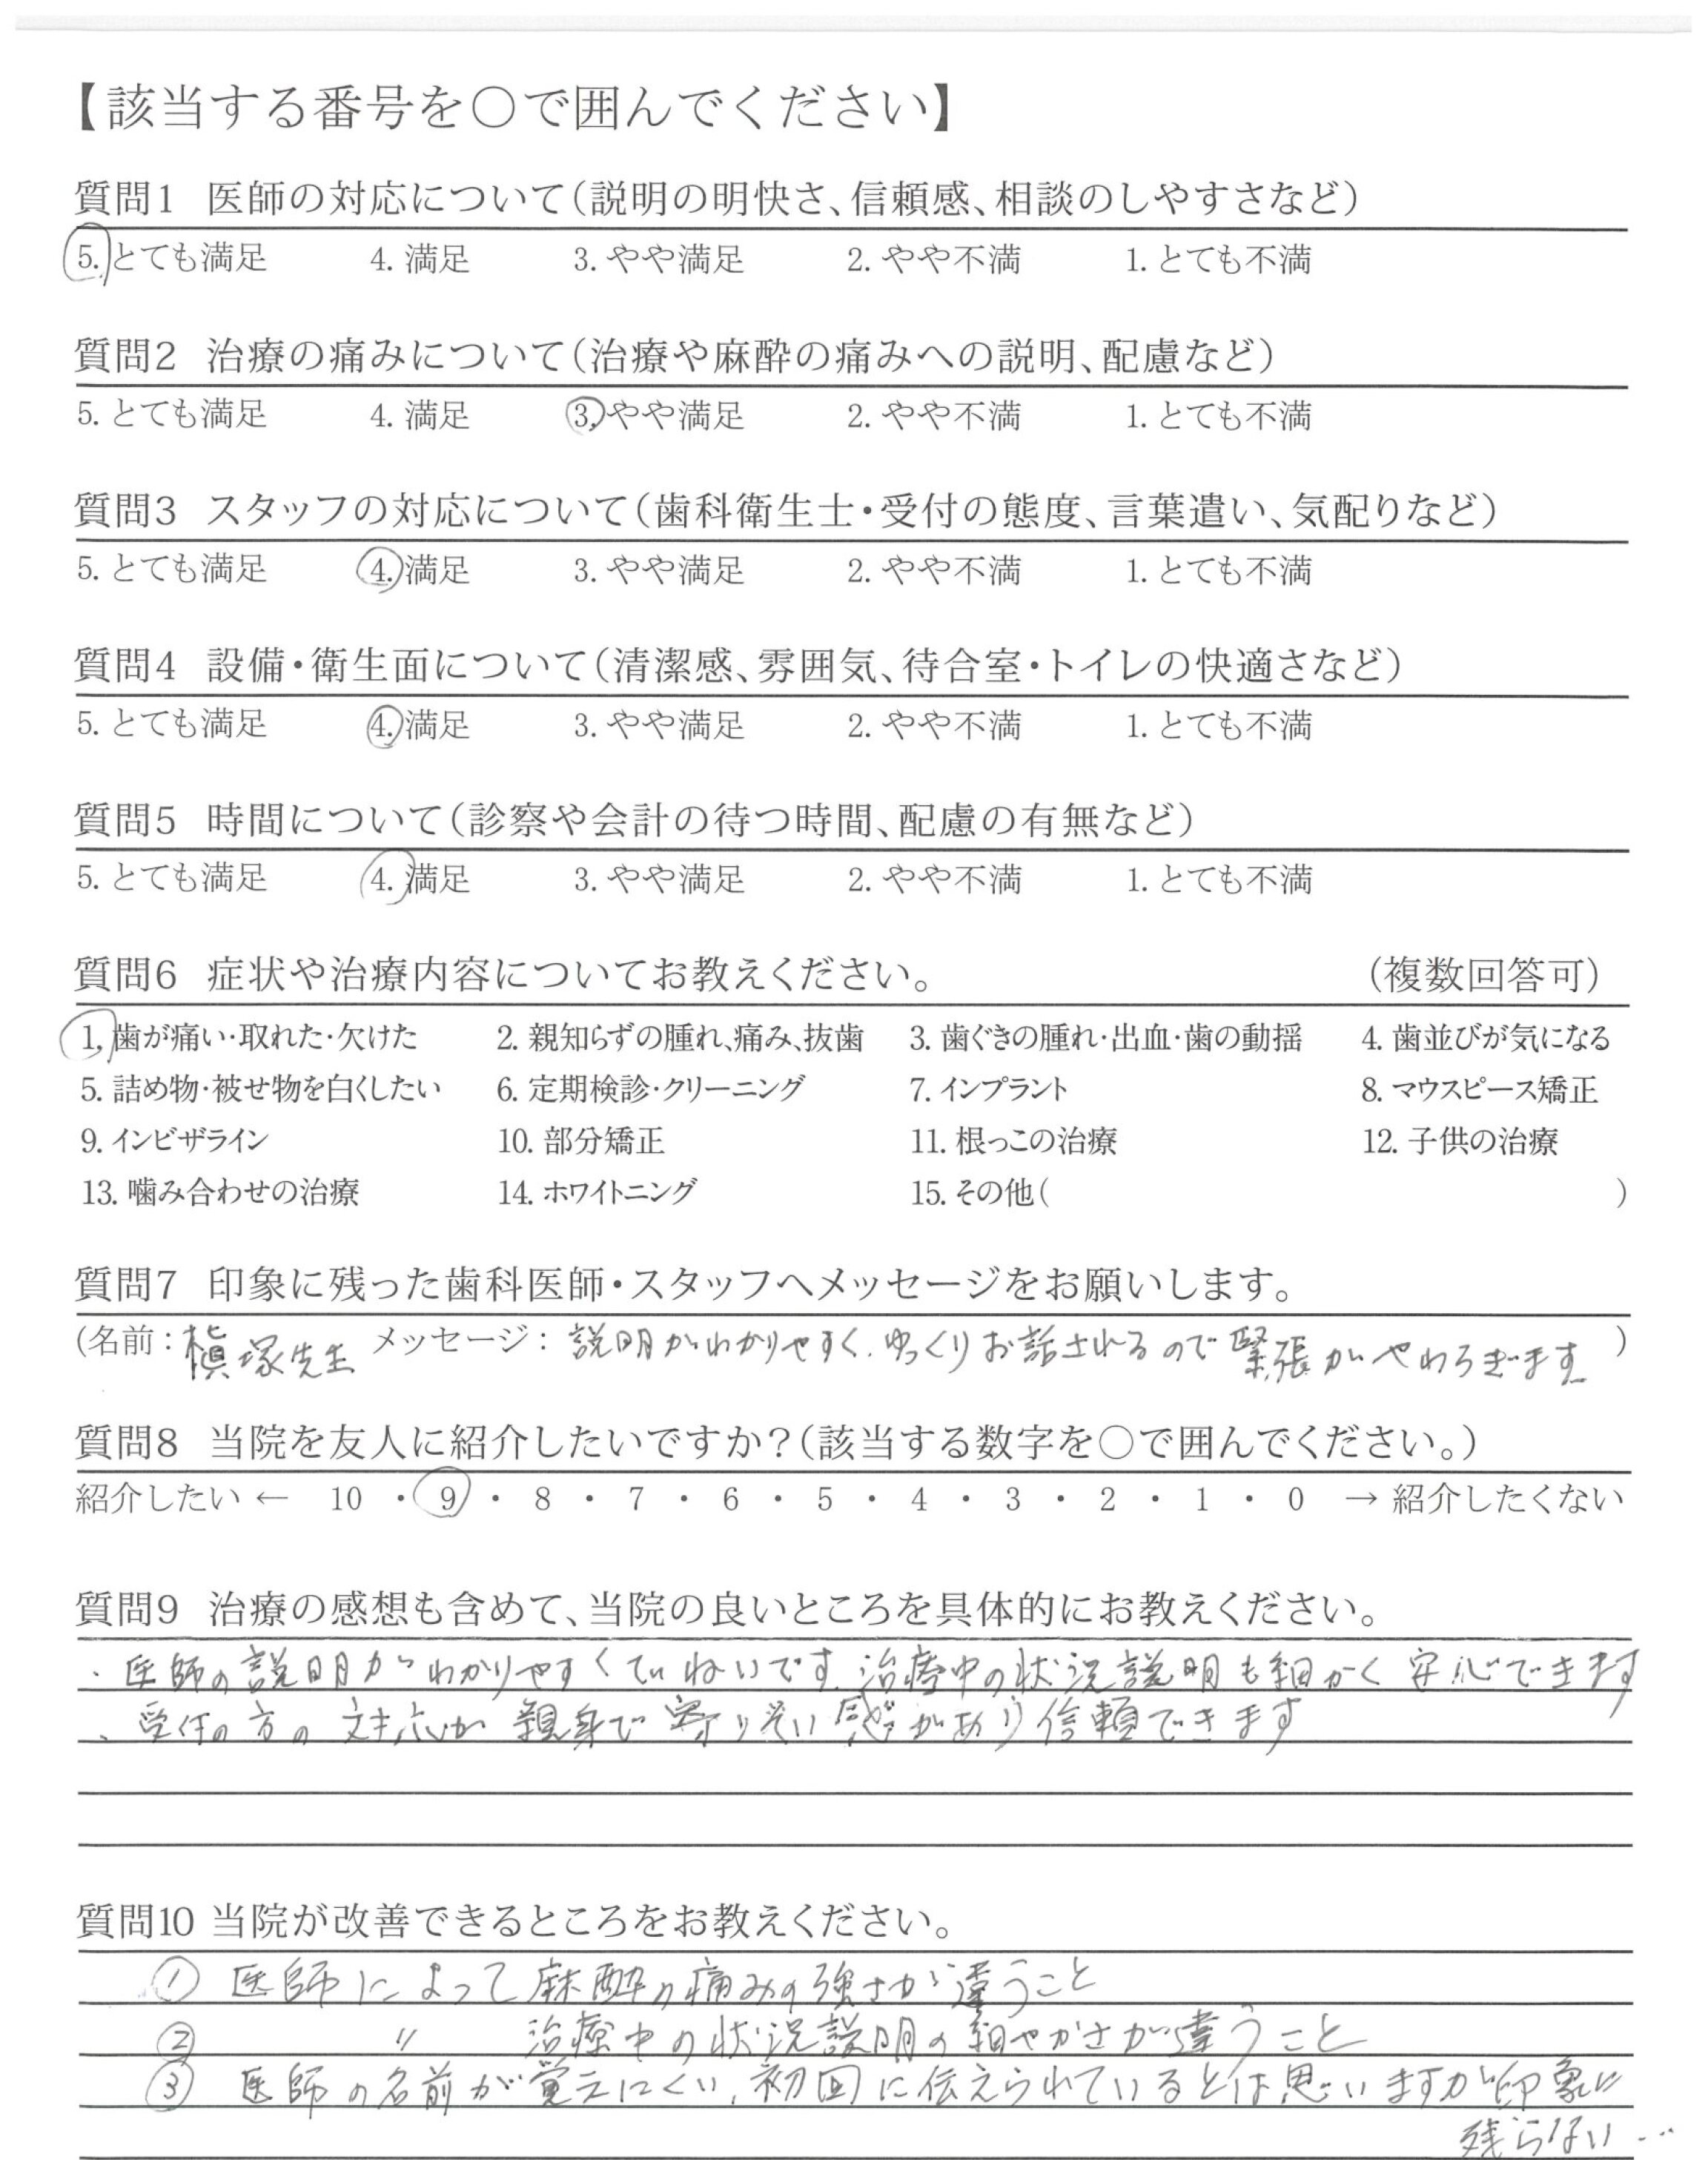 【該当する番号を○で囲んでください】
質問1 医師の対応について(説明の明快さ、信頼感、相談のしやすさなど)
5. とても満足 4. 満足 3. やや満足 2. やや不満 1. とても不満
質問2 治療の痛みについて(治療や麻酔の痛みへの説明、配慮など)
5. とても満足 4. 満足 3. やや満足 2. やや不満 1. とても不満
質問3 スタッフの対応について(歯科衛生士・受付の態度、言葉遣い、気配りなど)
5. とても満足 4. 満足 3. やや満足 2. やや不満 1. とても不満
質問4 設備・衛生面について(清潔感、雰囲気、待合室・トイレの快適さなど)
5. とても満足 4. 満足 3. やや満足 2. やや不満 1. とても不満
質問5 時間について(診察や会計の待つ時間、配慮の有無など)
5. とても満足 4. 満足 3. やや満足 2. やや不満 1. とても不満
質問6 症状や治療内容についてお教えください。 (複数回答可)
1. 歯が痛い・取れた・欠けた 2. 親知らずの腫れ、痛み、抜歯 3. 歯ぐきの腫れ・出血・歯の動揺 4. 歯並びが気になる
5. 詰め物・被せ物を白くしたい 6. 定期検診・クリーニング 7. インプラント 8. マウスピース矯正
9. インビザライン 10. 部分矯正 11. 根っこの治療 12. 子供の治療
13. 噛み合わせの治療 14. ホワイトニング 15. その他( )
質問7 印象に残った歯科医師・スタッフへメッセージをお願いします。
(名前：槇塚先生 メッセージ：説明がわかりやすく、ゆっくりお話されるので緊張がやわらぎます )
質問8 当院を友人に紹介したいですか？(該当する数字を○で囲んでください。)
紹介したい ← 10 ・ 9 ・ 8 ・ 7 ・ 6 ・ 5 ・ 4 ・ 3 ・ 2 ・ 1 ・ 0 → 紹介したくない
質問9 治療の感想も含めて、当院の良いところを具体的にお教えください。
・医師の説明がわかりやすくていねいです。治療中の状況説明も細かく安心できます
・受付の方の対応が親身で寄りそい感があり信頼できます
質問10 当院が改善できるところをお教えください。
① 医師によって麻酔の痛みの強さが違うこと
② 〃 治療中の状況説明の細やかさが違うこと
③ 医師の名前が覚えにくい、初回に伝えられているとは思いますが印象に
残らない…